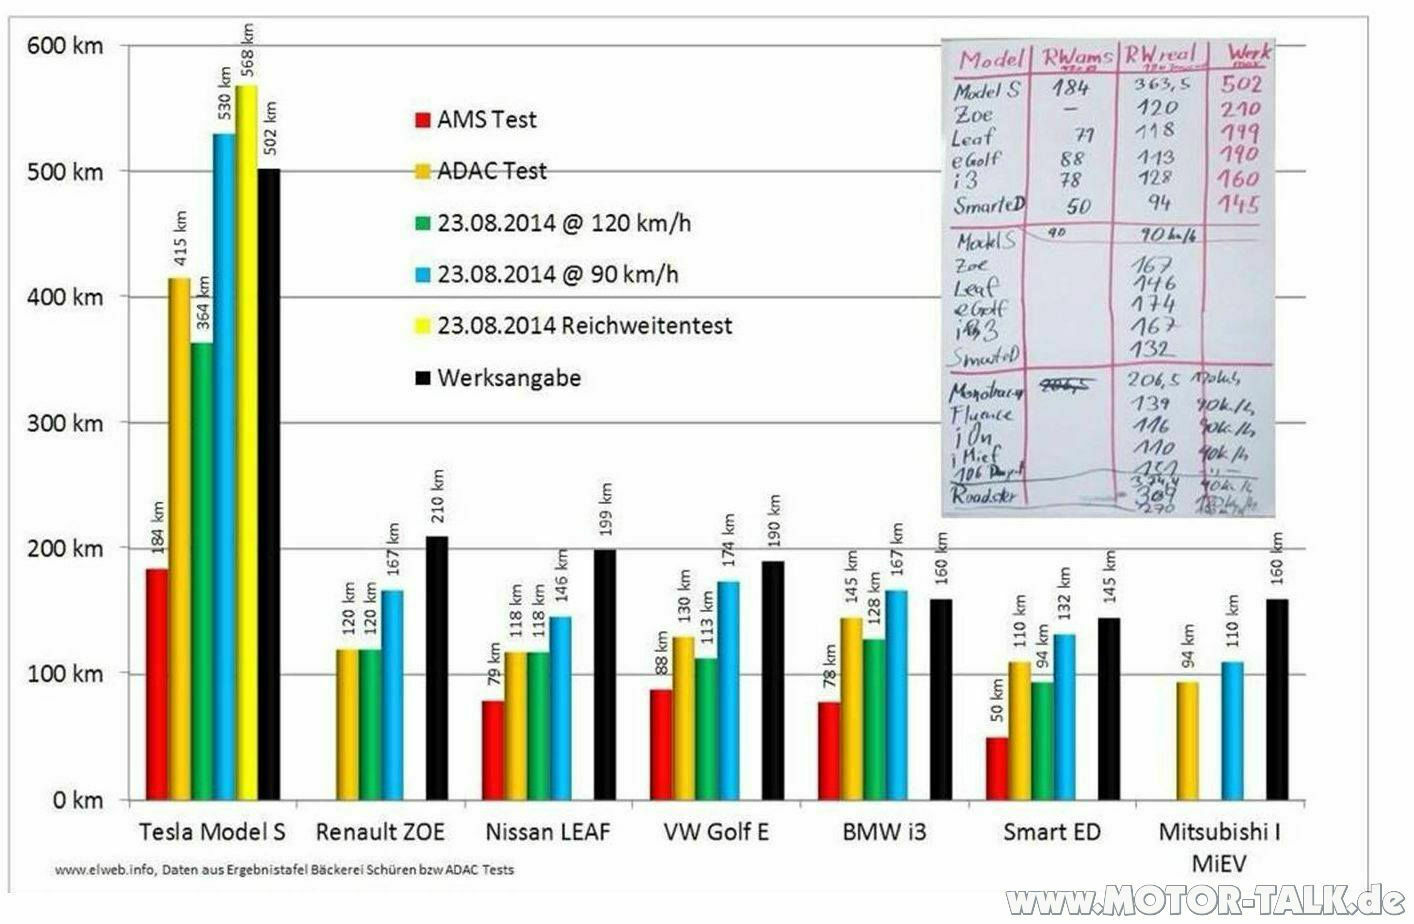 600 km
500 km
400 km
300 km
200 km
100 km
0 km
AMS Test
ADAC Test
23.08.2014 @ 120 km/h
23.08.2014 @ 90 km/h
23.08.2014 Reichweitentest
Werksangabe
184 km
415 km
364 km
530 km
568 km
502 km
120 km
120 km
167 km
210 km
79 km
118 km
118 km
146 km
199 km
88 km
130 km
113 km
174 km
190 km
78 km
145 km
128 km
167 km
160 km
50 km
110 km
94 km
132 km
145 km
94 km
110 km
160 km
Tesla Model S
Renault ZOE
Nissan LEAF
VW Golf E
BMW i3
Smart ED
Mitsubishi I
MiEV
Model RWams RWreal Werk
Model S 184 363,5 502
Zoe – 120 210
Leaf 79 118 199
eGolf 88 113 190
i3 78 128 160
SmarteD 50 94 145
Model S 90 90 km/h
Zoe 167
Leaf 146
eGolf 174
i3 167
SmarteD 132
206,5
Fluence 139 90k./h
iOn 116 90k./h
i Mief 110 90k./h
106
Roadster
270
www.elweb.info, Daten aus Ergebnistafel Bäckerei Schüren bzw ADAC Tests
www.MOTOR-TALK.de